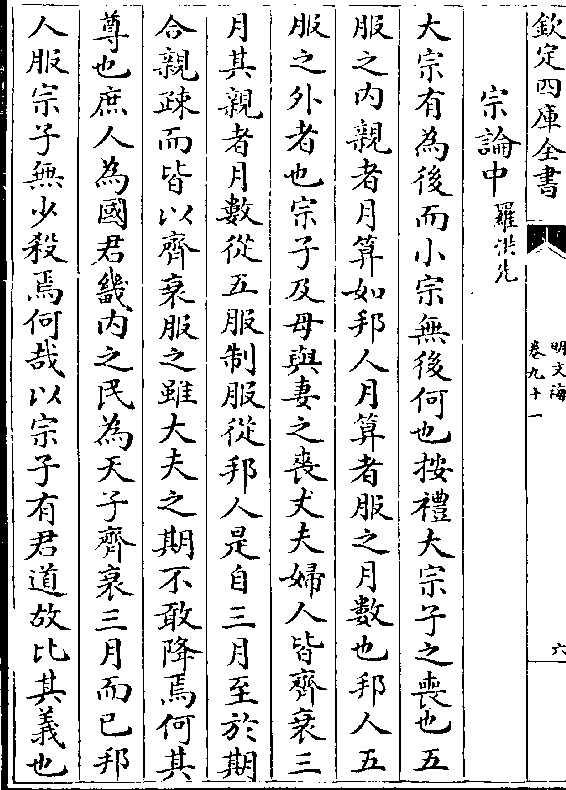 欽定四庫全書
明文海
卷九十一
六
宗論中 羅洪先
大宗有為後而小宗無後何也按禮大宗子之喪也五
服之内親者月算如邦人月算者服之月數也邦人五
服之外者也宗子及母與妻之喪丈夫婦人皆齊衰三
月其親者月數從五服制服從邦人是自三月至於期
合親疎而皆以齊衰服之雖大夫之期不敢降焉何其
尊也庶人為國君畿内之民為天子齊衰三月而已邦
人服宗子無少殺焉何哉以宗子有君道故比其義也